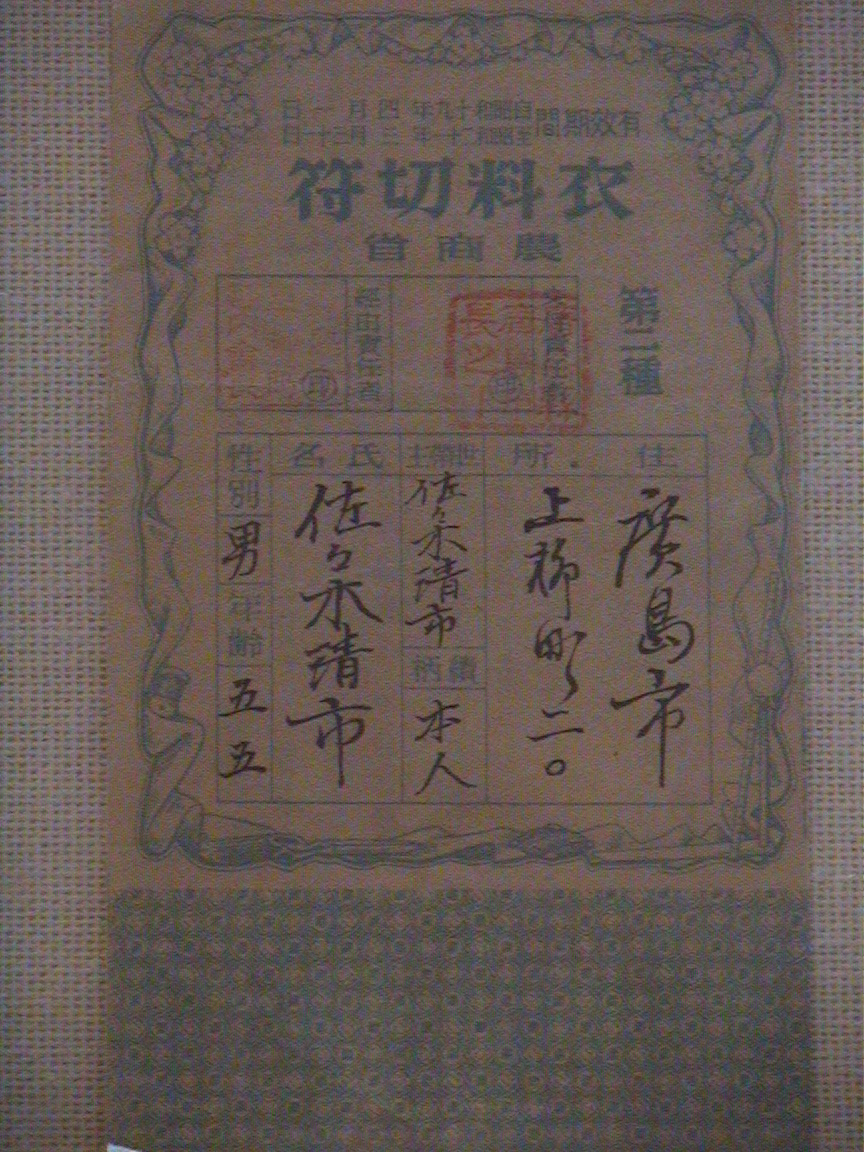 有效期間
自昭和十九年四月一日
至昭和二十一年三月三十一日
衣料切符
農商省
第二種
責任者
印
經由責任者
印
住所
廣島市
上柳町二〇
世帶主
佐々木清市
續柄
本人
氏名
佐々木清市
性別
男
年齡
五五